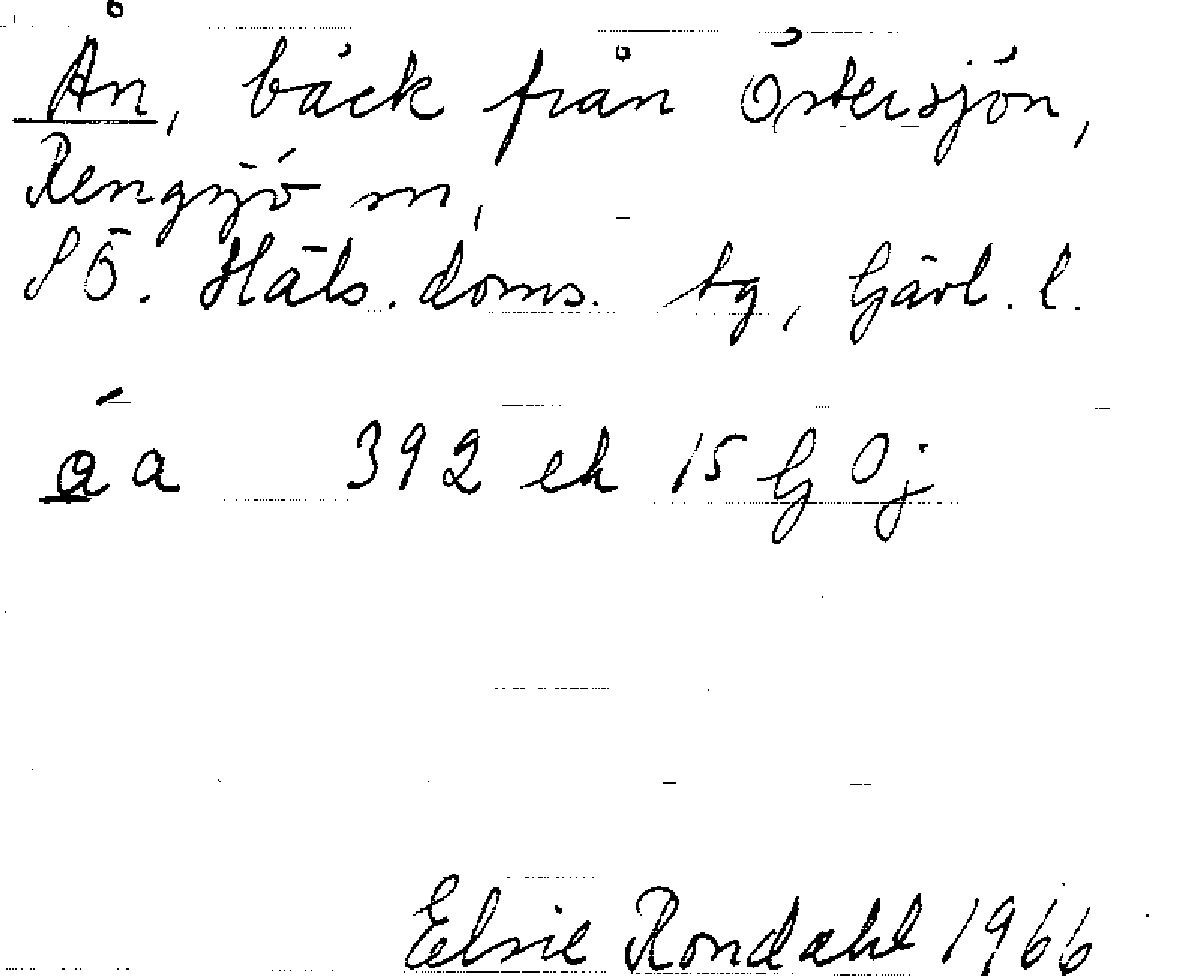 Ån, bäck från Östersjön,
Rengsjö sn,
SÖ. Häls. doms. tg, Gävl. l.
áa 392 ek 15 G Oj
Elsie Rondahl 1966